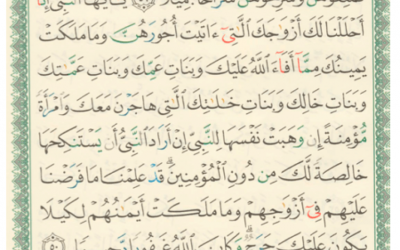 فَمَتِّعُوهُنَّ وَسَرِّحُوهُنَّ سَرَاحًا جَمِيلًا ۝ يَٰٓأَيُّهَا ٱلنَّبِيُّ إِنَّآ
أَحْلَلْنَا لَكَ أَزْوَٰجَكَ ٱلَّٰتِيٓ ءَاتَيْتَ أُجُورَهُنَّ وَمَا مَلَكَتْ
يَمِينُكَ مِمَّآ أَفَآءَ ٱللَّهُ عَلَيْكَ وَبَنَاتِ عَمِّكَ وَبَنَاتِ عَمَّٰتِكَ
وَبَنَاتِ خَالِكَ وَبَنَاتِ خَٰلَٰتِكَ ٱلَّٰتِي هَاجَرْنَ مَعَكَ وَٱمْرَأَةً
مُّؤْمِنَةً إِن وَهَبَتْ نَفْسَهَا لِلنَّبِيِّ إِنْ أَرَادَ ٱلنَّبِيُّ أَن يَسْتَنكِحَهَا
خَالِصَةً لَّكَ مِن دُونِ ٱلْمُؤْمِنِينَ ۗ قَدْ عَلِمْنَا مَا فَرَضْنَا
عَلَيْهِمْ فِيٓ أَزْوَٰجِهِمْ وَمَا مَلَكَتْ أَيْمَٰنُهُمْ لِكَيْلَا
يَكُونَ عَلَيْكَ حَرَجٌ ۗ وَكَانَ ٱللَّهُ غَفُورًا رَّحِيمًا ۝